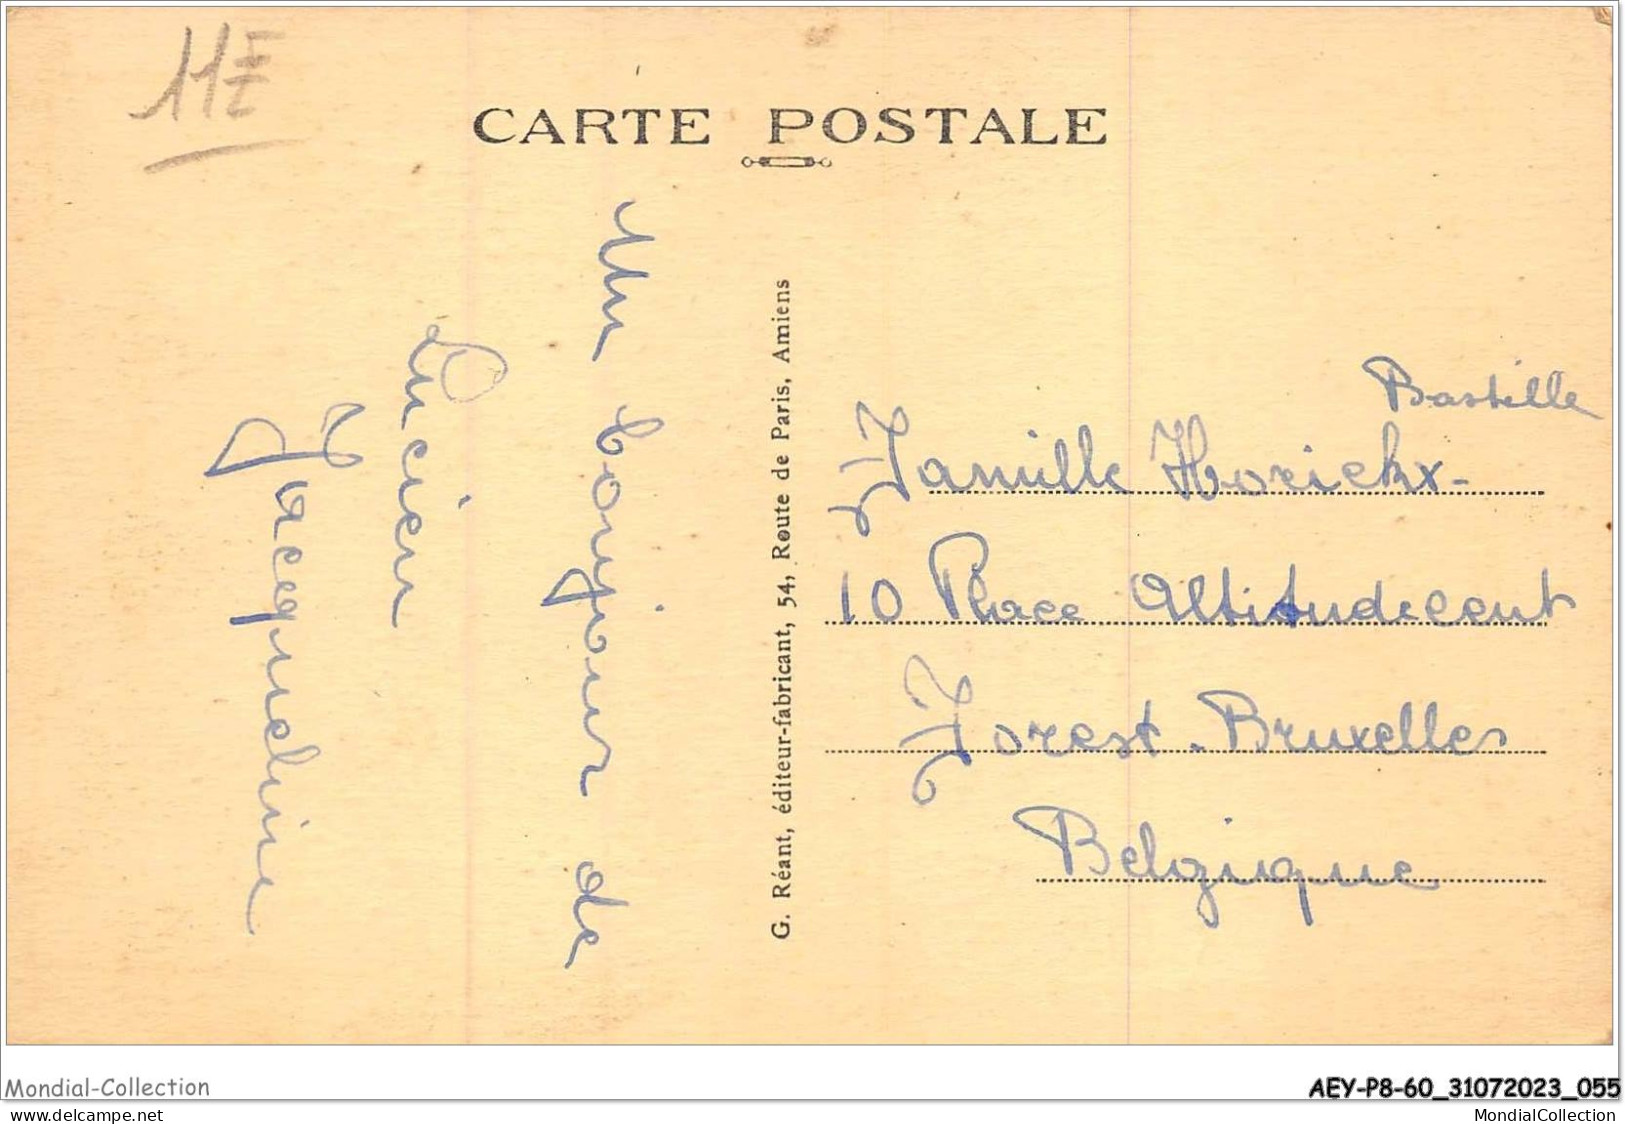 11E
CARTE POSTALE
Un bonjour de
Lucien
Jacqueline
G. Réant, éditeur-fabricant, 54, Route de Paris, Amiens
Bastille
Famille Horickx-
10 Place Altitudecent
Forest-Bruxelles
Belgique
Mondial-Collection
AEY-P8-60_31072023_055
www.delcampe.net
MondialCollection